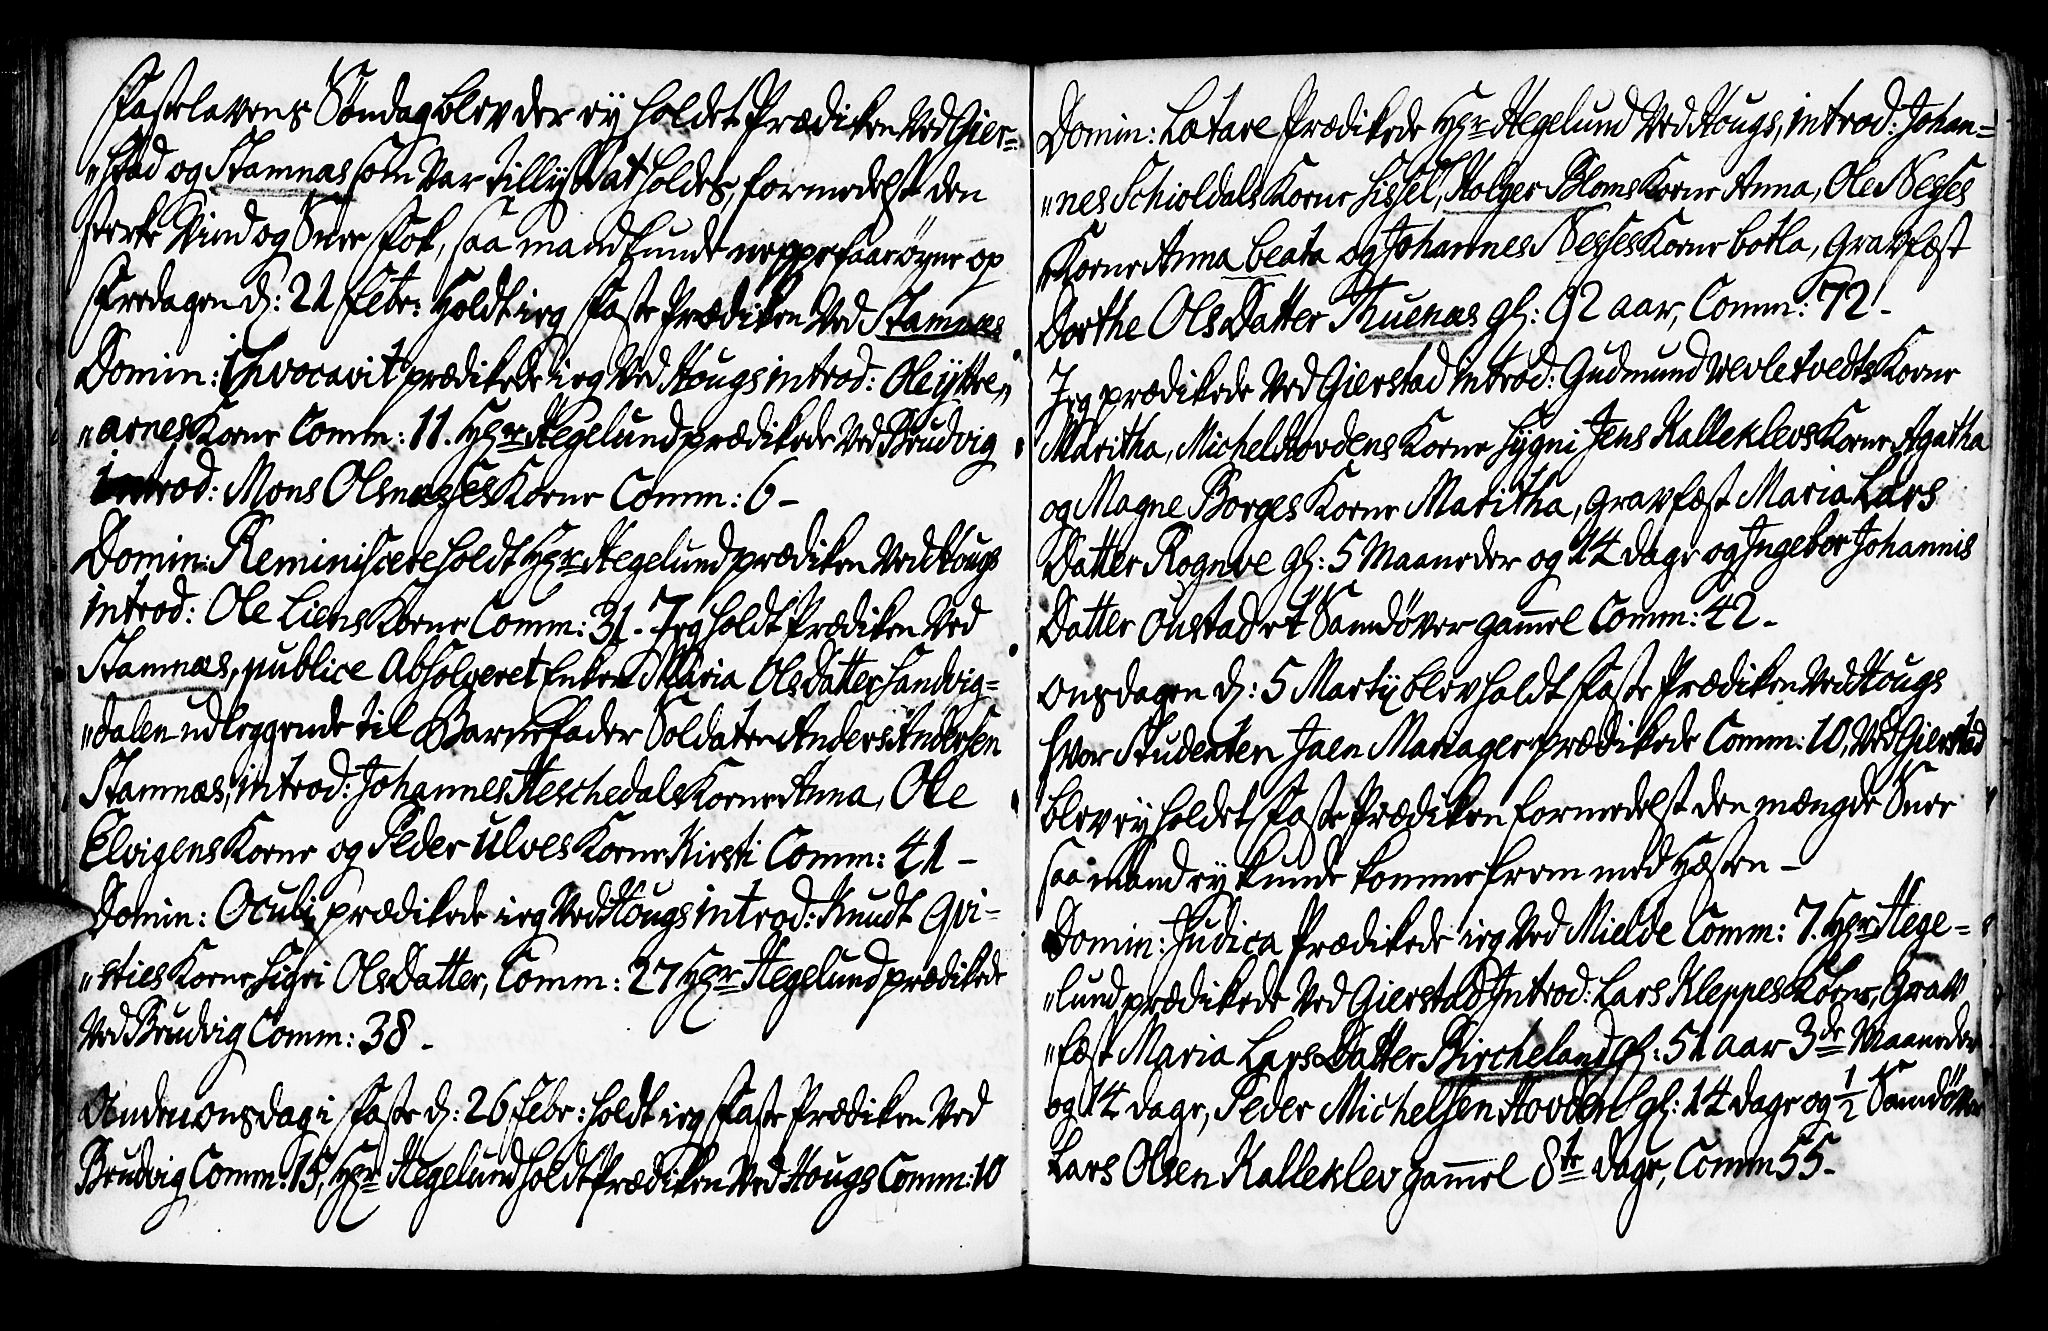 Fastelavens Søndag blev der ey holdet Prædiken Ved Gier=
"stad og Stamnæs som Var tillyst at holdes, formedelst den
sterke Vind og Snee fok, saa mand kunde neppe faae øyne op
Fredagen d: 21 Febr: holdt ieg Faste Prædiken Ved Stamnæs
Domin: Invocavit prædikede ieg Ved Hougs introd: Ole Yttre"
"arnes Kone Comm: 11. Hr Hegelund prædikede Ved Brudvig
introd: Mons Olsnæsses Kone Comm: 6 -
Domin: Reminiscere holdt Hr Hegelund prædiken Ved Hougs
introd: Ole Liens Kone Comm: 31. Jeg holdt Prædiken Ved
Stamnæs, publice Absolveret Enken Maria OlsDatter Sandvig=
"dalen udleggende til Barnefader Soldaten Anders Andersen
Stamnæs, introd: Johannes Heschedals Kone Anna, Ole
Elvigens Kone og Peder Ulves Kone Kirsti Comm: 41 -
Domin: Oculi prædikede ieg Ved Hougs introd: Knudt Qvi=
"sties Kone Sigri OlsDatter, Comm: 27 Hr Hegelund prædikede
Ved Brudvig Comm: 38 -
Anden onsdag i Faste d: 26 Febr: holdt ieg Faste Prædiken Ved
Brudvig Comm: 15, Hr Hegelund holdt Prædiken Ved Hougs Comm: 10
Domin: Lætare Prædikede Hr Hegelund Ved Hougs, introd: Johan=
"nes Schioldals Kone Sissel, Holger Bloms Kone Anna, Ole Nesses
Kone Anna beata og Johannes Nesses Kone botla, Gravfæst
Dorthe OlsDatter Thuenæs gl: 92 aar, Comm: 72 -
Jeg prædikede Ved Gierstad introd: Gudmund Vevletvedts Kone
Maritha, Michel Hovdens Kone Sygni Jens Kalleklevs Kone Agatha
og Magne Borges Kone Maritha, Gravfæst Maria Lars
Datter Rognve gl: 5 Maaneder og 14 dage og Ingebor Johannis
Datter Oustad et Samdøver gam̅el Comm: 42 -
Onsdagen d: 5 Martij blev holdt Faste Prædiken Ved Hougs
hvor Studenten Jaen Mariager prædikede Comm: 10, Ved Gierstad
blev ey holdet Faste Prædiken formedelst den mængde Snee
saa mand ey kunde komme frem med Hæsten -
Domin: Judica Prædikede ieg Ved Mielde Comm: 7. Hr Hege=
"lund prædikede Ved Gierstad Introd: Lars Kleppes Kone, Grav
"fæst Maria LarsDatter Bircheland gl: 51 aar 3de Maaneder
og 14 dage, Peder Michelsen Hovden gl: 14 dage og ½ Samdøver
Lars Olsen Kalleklev gam̅el 8te dage, Comm 55 -